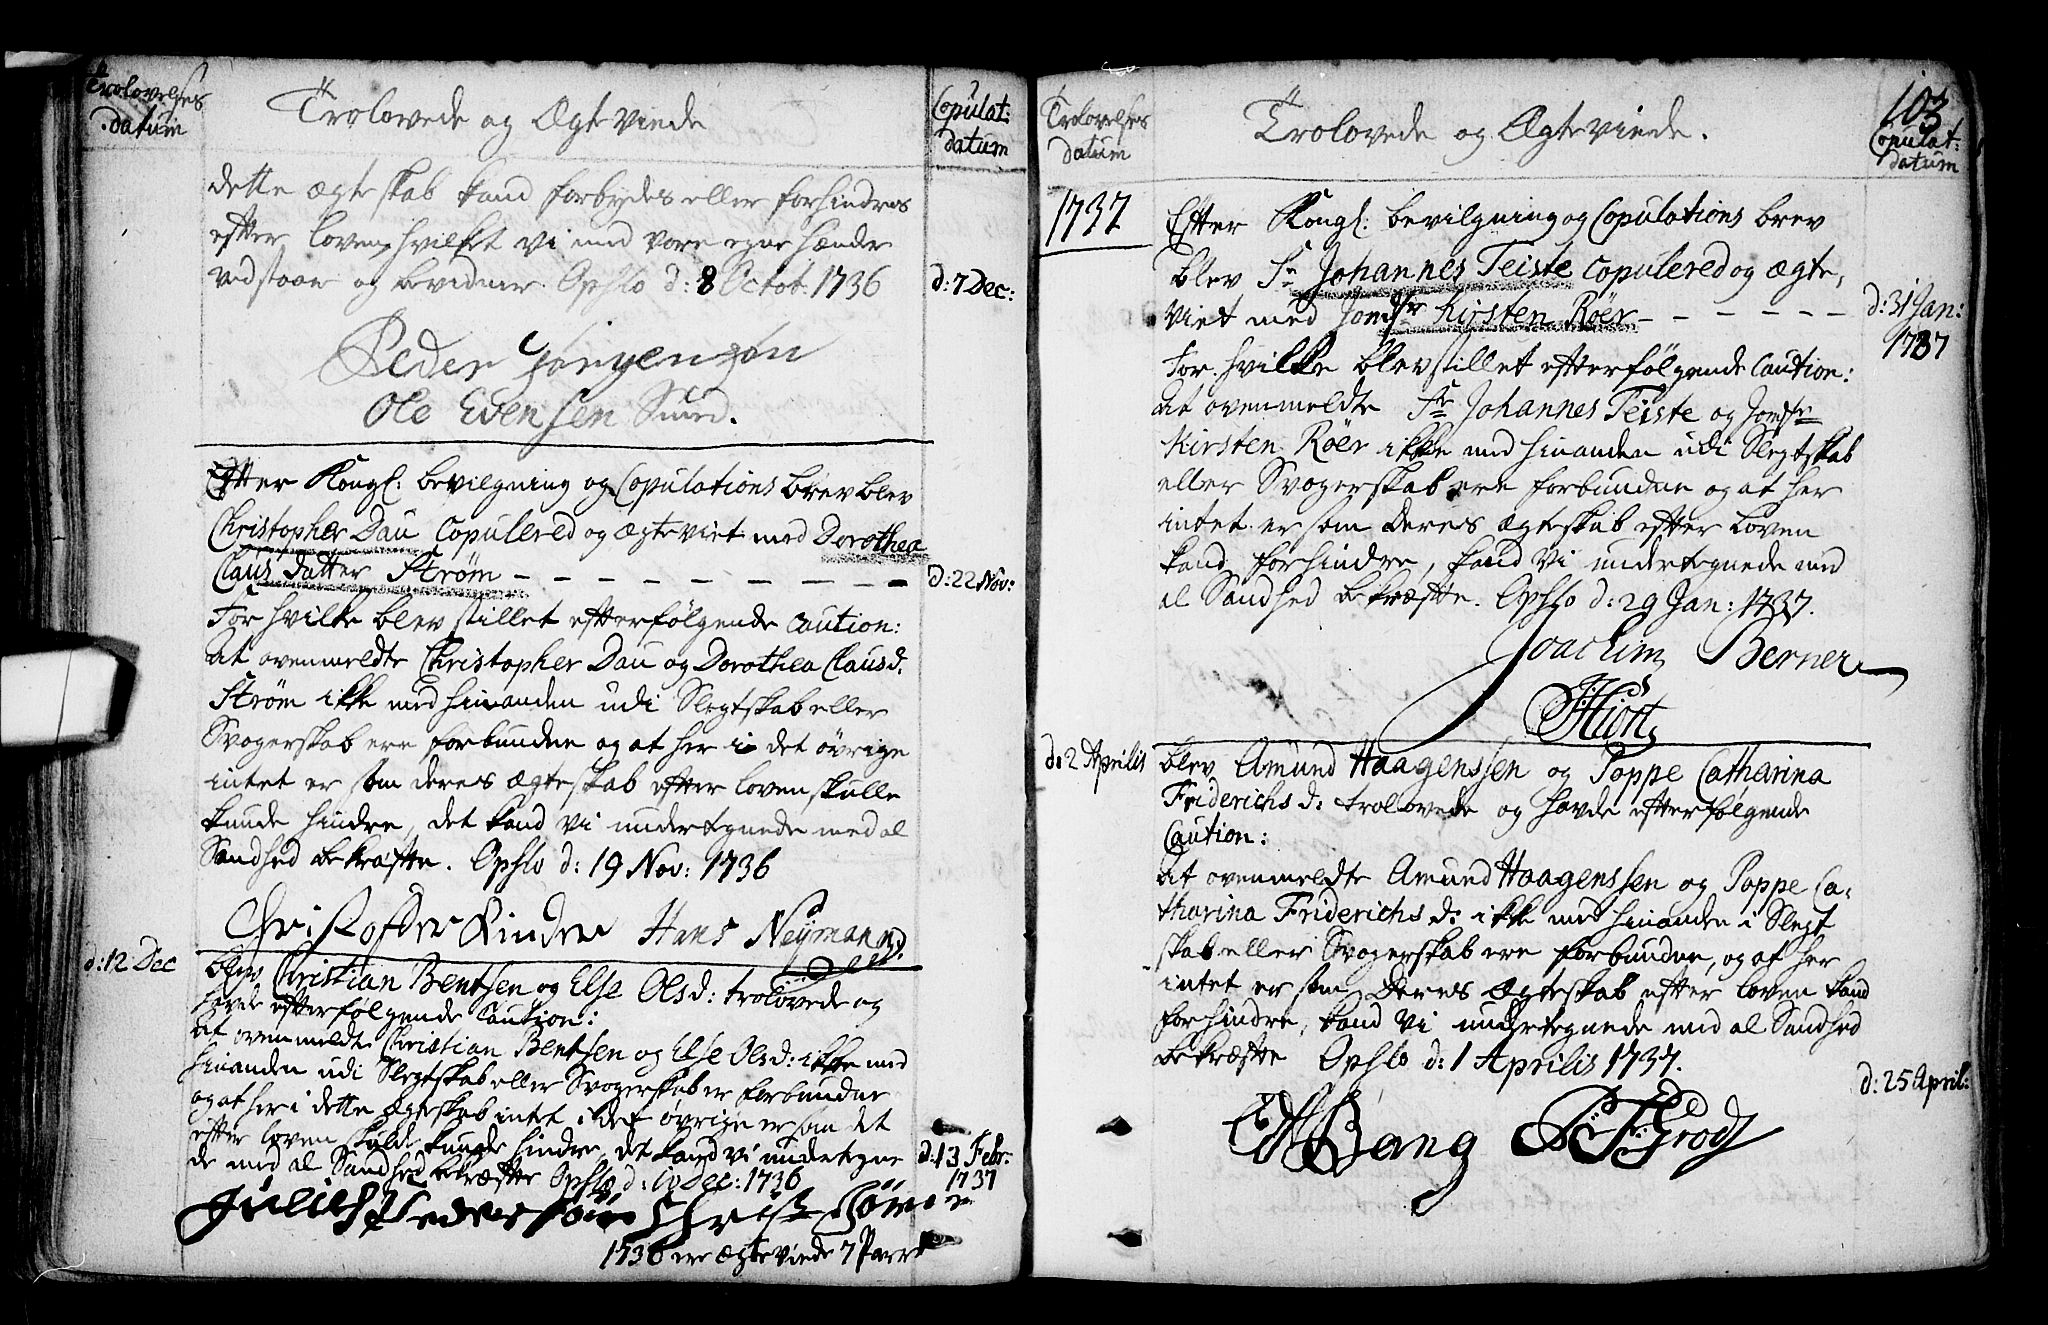 Trolovelses
datum
Trolovede og Ægteviede
Copulat:
datum
dette ægteskab kand forbydes eller forhindres
efter loven, hvilket vi med vore egne hænder
vedstaae og bevidner. Opslo d: 8 Octob: 1736
d: 7 Dec:
Peder Jörgensön
Ole Evensen Sund.
Efter Kongl: bevilgning og Copulations brev blev
Christopher Dau Copulered og ægteviet med Dorothea
Claus datter Strøm – – – – – – – – – –
d: 22 Nov:
For hvilke blev stillet efterfølgende Caution:
At ovenmeldte Christopher Dau og Dorothea Clausd.
Strøm ikke med hinanden udi Slegtskab eller
Svogerskab ere forbundne og at her i det øvrige
intet er som deres ægteskab efter loven skulle
kunde hindre, det kand vi undertegnede med al
Sandhed bekræfte. Opslo d: 19 Nov: 1736
Christoffer Hans Neÿmann
d: 12 Dec
blev Christian Bentsen og Else Olsd: trolovede og
havde efterfølgende Caution:
At ovenmeldte Christian Bentsen og Else Olsd: ikke med
hinanden udi Slegtskab eller Svogerskab er forbundne
og at her i dette ægteskab intet i det øvrige er som det
efter loven skulde kunde hindre, det kand vi undertegne
de med al Sandhed bekræfte Opslo d: 10 Dec: 1736
d: 13 Febr:
1737
1736 ere ægteviede 7 Parr
103
Trolovelses
datum
Trolovede og Ægteviede.
Copulat:
datum
1737
Efter Kongl: bevilgning og Copulations brev
blev Sr Johannes Teiste copulered og ægte,
viet med Jomfr Kirsten Röer – – – – – –
d: 31 Jan:
1737
For hvilke blev stillet efterfølgende Caution:
At ovenmeldte Sr Johannes Teiste og Jomfr
Kirsten Röer ikke med hinanden udi Slegtskab
eller Svogerskab ere forbundne og at her
intet er som deres ægteskab efter loven
kand forhindre, kand vi undertegnede med
al Sandhed bekræfte. Opslo d: 29 Jan: 1737.
Joachim Berner
Hiort
d: 2 Aprilis
blev Amund Haagenssen og Poppe Catharina
Friderichs d: trolovede og havde efterfølgende
Caution:
At ovenmeldte Amund Haagenssen og Poppe Ca-
tharina Friderichs d: ikke med hinanden i Slegt
skab eller Svogerskab ere forbundne, og at her
intet er som deres ægteskab efter loven kand
forhindre, kand vi undertegnede med al Sandhed
bekræfte Opslo d: 1 Aprilis 1737.
d: 25 April:
Bang